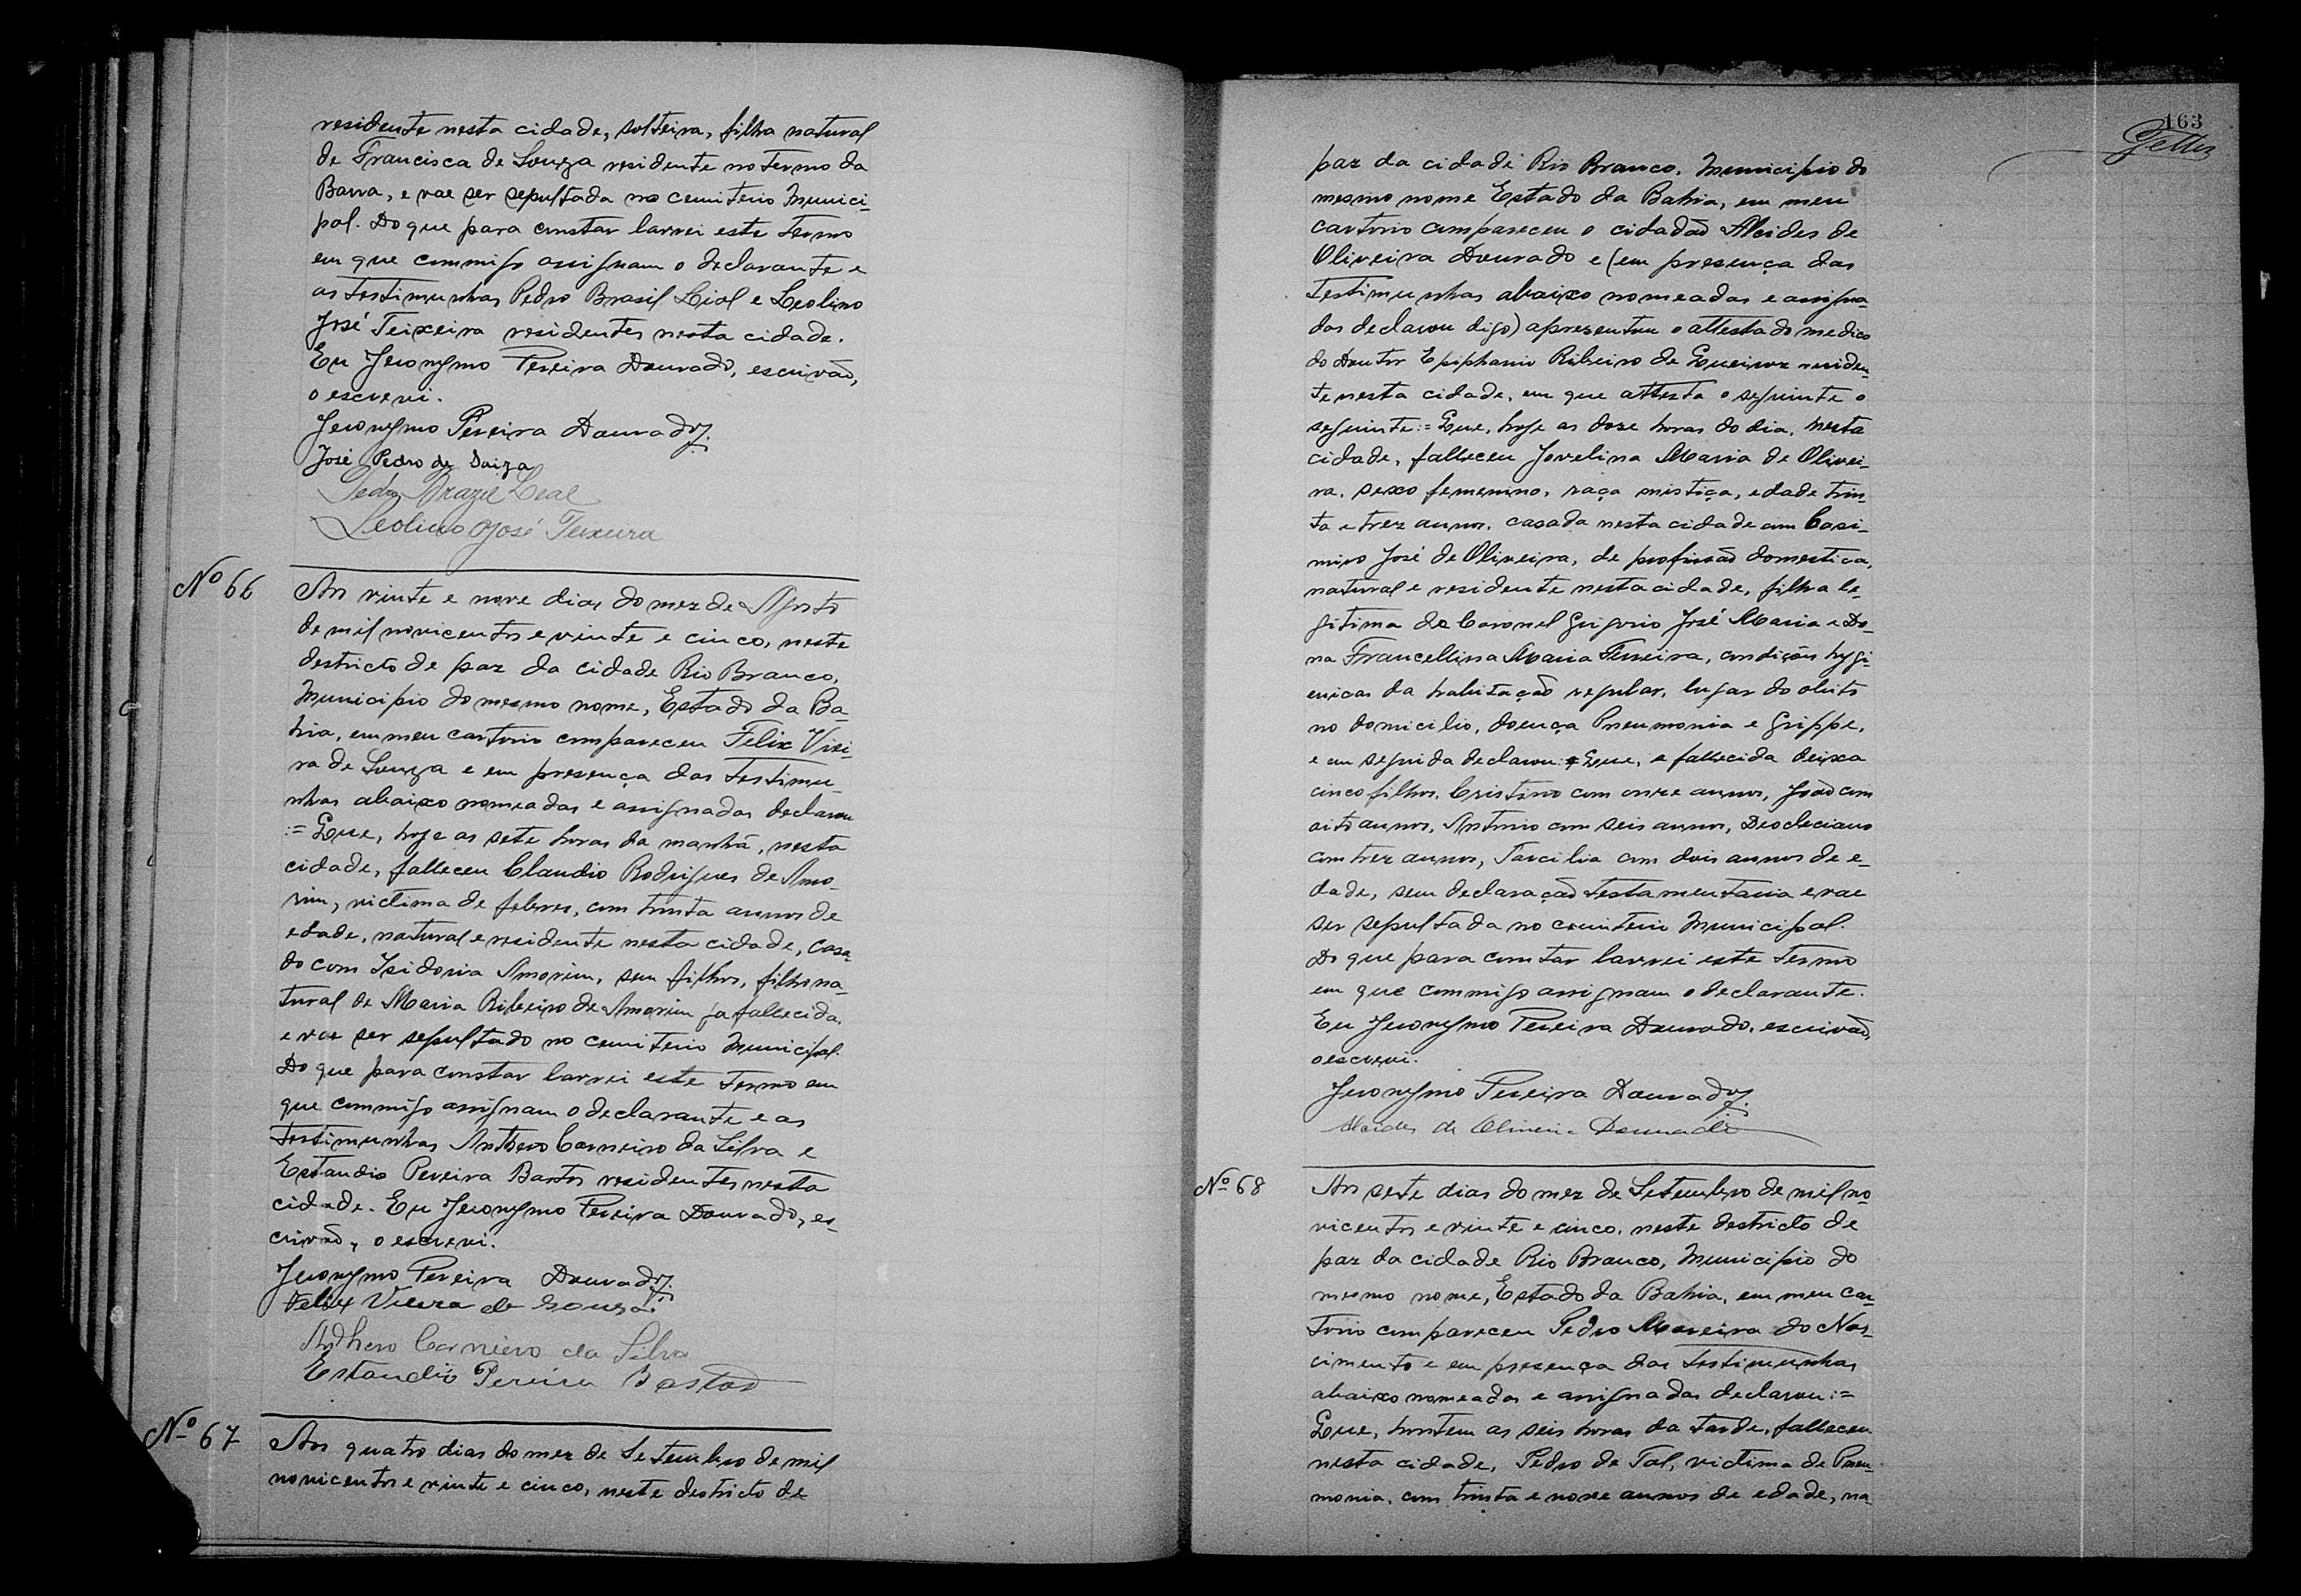 residente nesta cidade, solteira, filha natural
de Francisca de Souza residente no termo da
Barra, e vae ser sepultada no cemiterio Munici-
pal. Do que para constar lavrei este termo
em que commigo assignam o declarante e
as testimunhas Pedro Brasil Lial e Leolino
José Teixeira residentes nesta cidade.
Eu Jeronymo Pereira Dourado, escrivão,
o escrevi.
Jeronymo Pereira Dourado.
José Pedro de Souza
Pedro Brazil Leal
Leolino José Teixeira
Nº 66
Aos vinte e nove dias do mez de Agosto
de mil novicentos e vinte e cinco, neste
destricto de paz da cidade Rio Branco,
Municipio do mesmo nome, Estado da Ba-
hia, em meu cartorio compareceu Felix Viei-
ra de Souza e em presença das testimu-
nhas abaixo nomeadas e assignadas declarou
:= Que, hoje as sete horas da manhã, nesta
cidade, falleceu Claudio Rodrigues de Amo-
rim, victima de febres, com trinta annos de
edade, natural e residente nesta cidade, casa-
do com Isidoria Amorim, sem filhos, filho na-
tural de Maria Ribeiro de Amorim ja fallecida,
e vae ser sepultado no cemiterio Municipal.
Do que para constar lavrei este termo em
que commigo assignam o declarante e as
testimunhas Anthero Carneiro da Silva e
Estaudio Pereira Bastos residentes nesta
cidade. Eu Jeronymo Pereira Dourado, es-
crivão, o escrevi.
Jeronymo Pereira Dourado.
Felix Vieira de Souza
Anthero Carneiro da Silva
Estaudio Pereira Bastos
Nº 67
Aos quatro dias do mez de Setembro de mil
novicentos e vinte e cinco, neste destricto de
163
Telles
paz da cidade Rio Branco, Municipio do
mesmo nome Estado da Bahia, em meu
cartorio compareceu o cidadão Alcides de
Oliveira Dourado e (em presença das
testimunhas abaixo nomeadas e assigna-
das declarou digo) apresentou o attestado medico
do Doutor Epiphanio Ribeiro de Queiroz residen-
te nesta cidade, em que attesta o seguinte o
seguinte:= Que, hoje as doze horas do dia, nesta
cidade, falleceu Jovelina Maria de Olivei-
ra, sexo femenino, raça mistiça, edade trin-
ta e trez annos, casada nesta cidade com Casi-
miro José de Oliveira, de profissão domestica,
natural e residente nesta cidade, filha le-
gitima do Coronel Grigorio José Maria e Do-
na Francellina Maria Ferreira, condições hygi-
enicas da habitação regular, lugar do obito
no domicilio, doença Pneumonia e Grippe,
e em seguida declarou: Que, a fallecida deixa
cinco filhos, Cristino com onze annos, João com
oito annos, Antonio com seis annos, Deocleciano
com trez annos, Tarcilia com dois annos de e-
dade, sem declaração testamentaria e vae
ser sepultada no cemiterio Municipal.
Do que para constar lavrei este termo
em que commigo assignam o declarante.
Eu Jeronymo Pereira Dourado, escrivão,
o escrevi.
Jeronymo Pereira Dourado.
Alcides de Oliveira Dourado
Nº 68
Aos sete dias do mez de Setembro de mil no-
vicentos e vinte e cinco, neste destricto de
paz da cidade Rio Branco, Municipio do
mesmo nome, Estado da Bahia, em meu car-
torio compareceu Pedro Moreira do Nas-
cimento e em presença das testimunhas
abaixo nomeadas e assignadas declarou:=
Que, hontem as seis horas da tarde, falleceu
nesta cidade, Pedro de Tal, victima de Pneu-
monia, com trinta e nove annos de edade, na